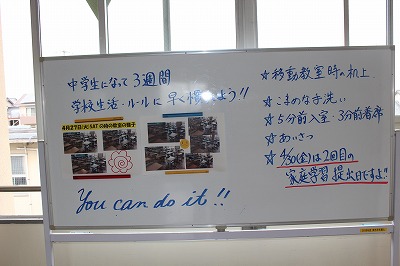 中学生になって3週間
学校生活・ルールに早く慣れよう!!
4月27日(火)SAT の時の教室の様子
You can do it!!
☆移動教室時の机上
☆こまめな手洗い
☆5分前入室・3分前着席
☆あいさつ
☆4/30(金)は2回目の
家庭学習提出日ですよ!!